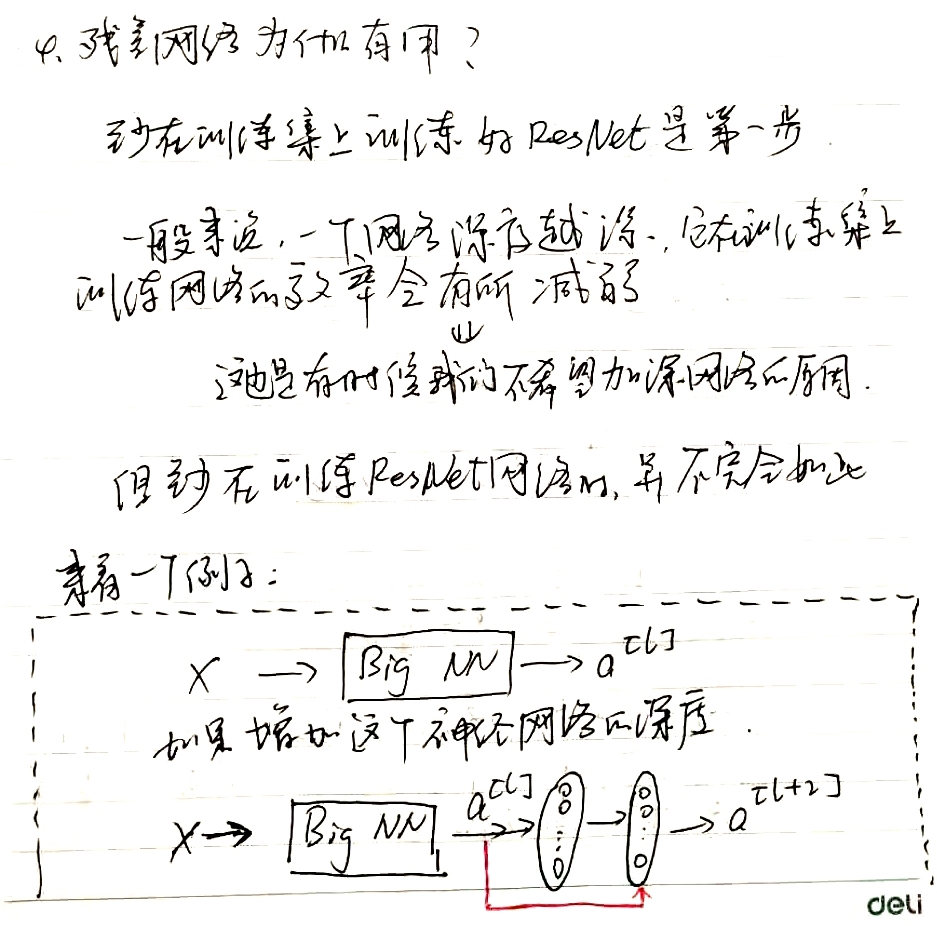 4. 残差网络为什么有用？
至少在训练集上训练好ResNet是第一步.
一般来说, 一个网络深度越深, 它在训练集上
训练网络的效率会有所减弱
⇓
这也是有时候我们不希望加深网络的原因.
但至少在训练ResNet网络时, 并不完全如此
来看一个例子:
X → Big NN → a[l]
如果增加这个神经网络的深度.
X → Big NN a[l] → → a[l+2]
deli